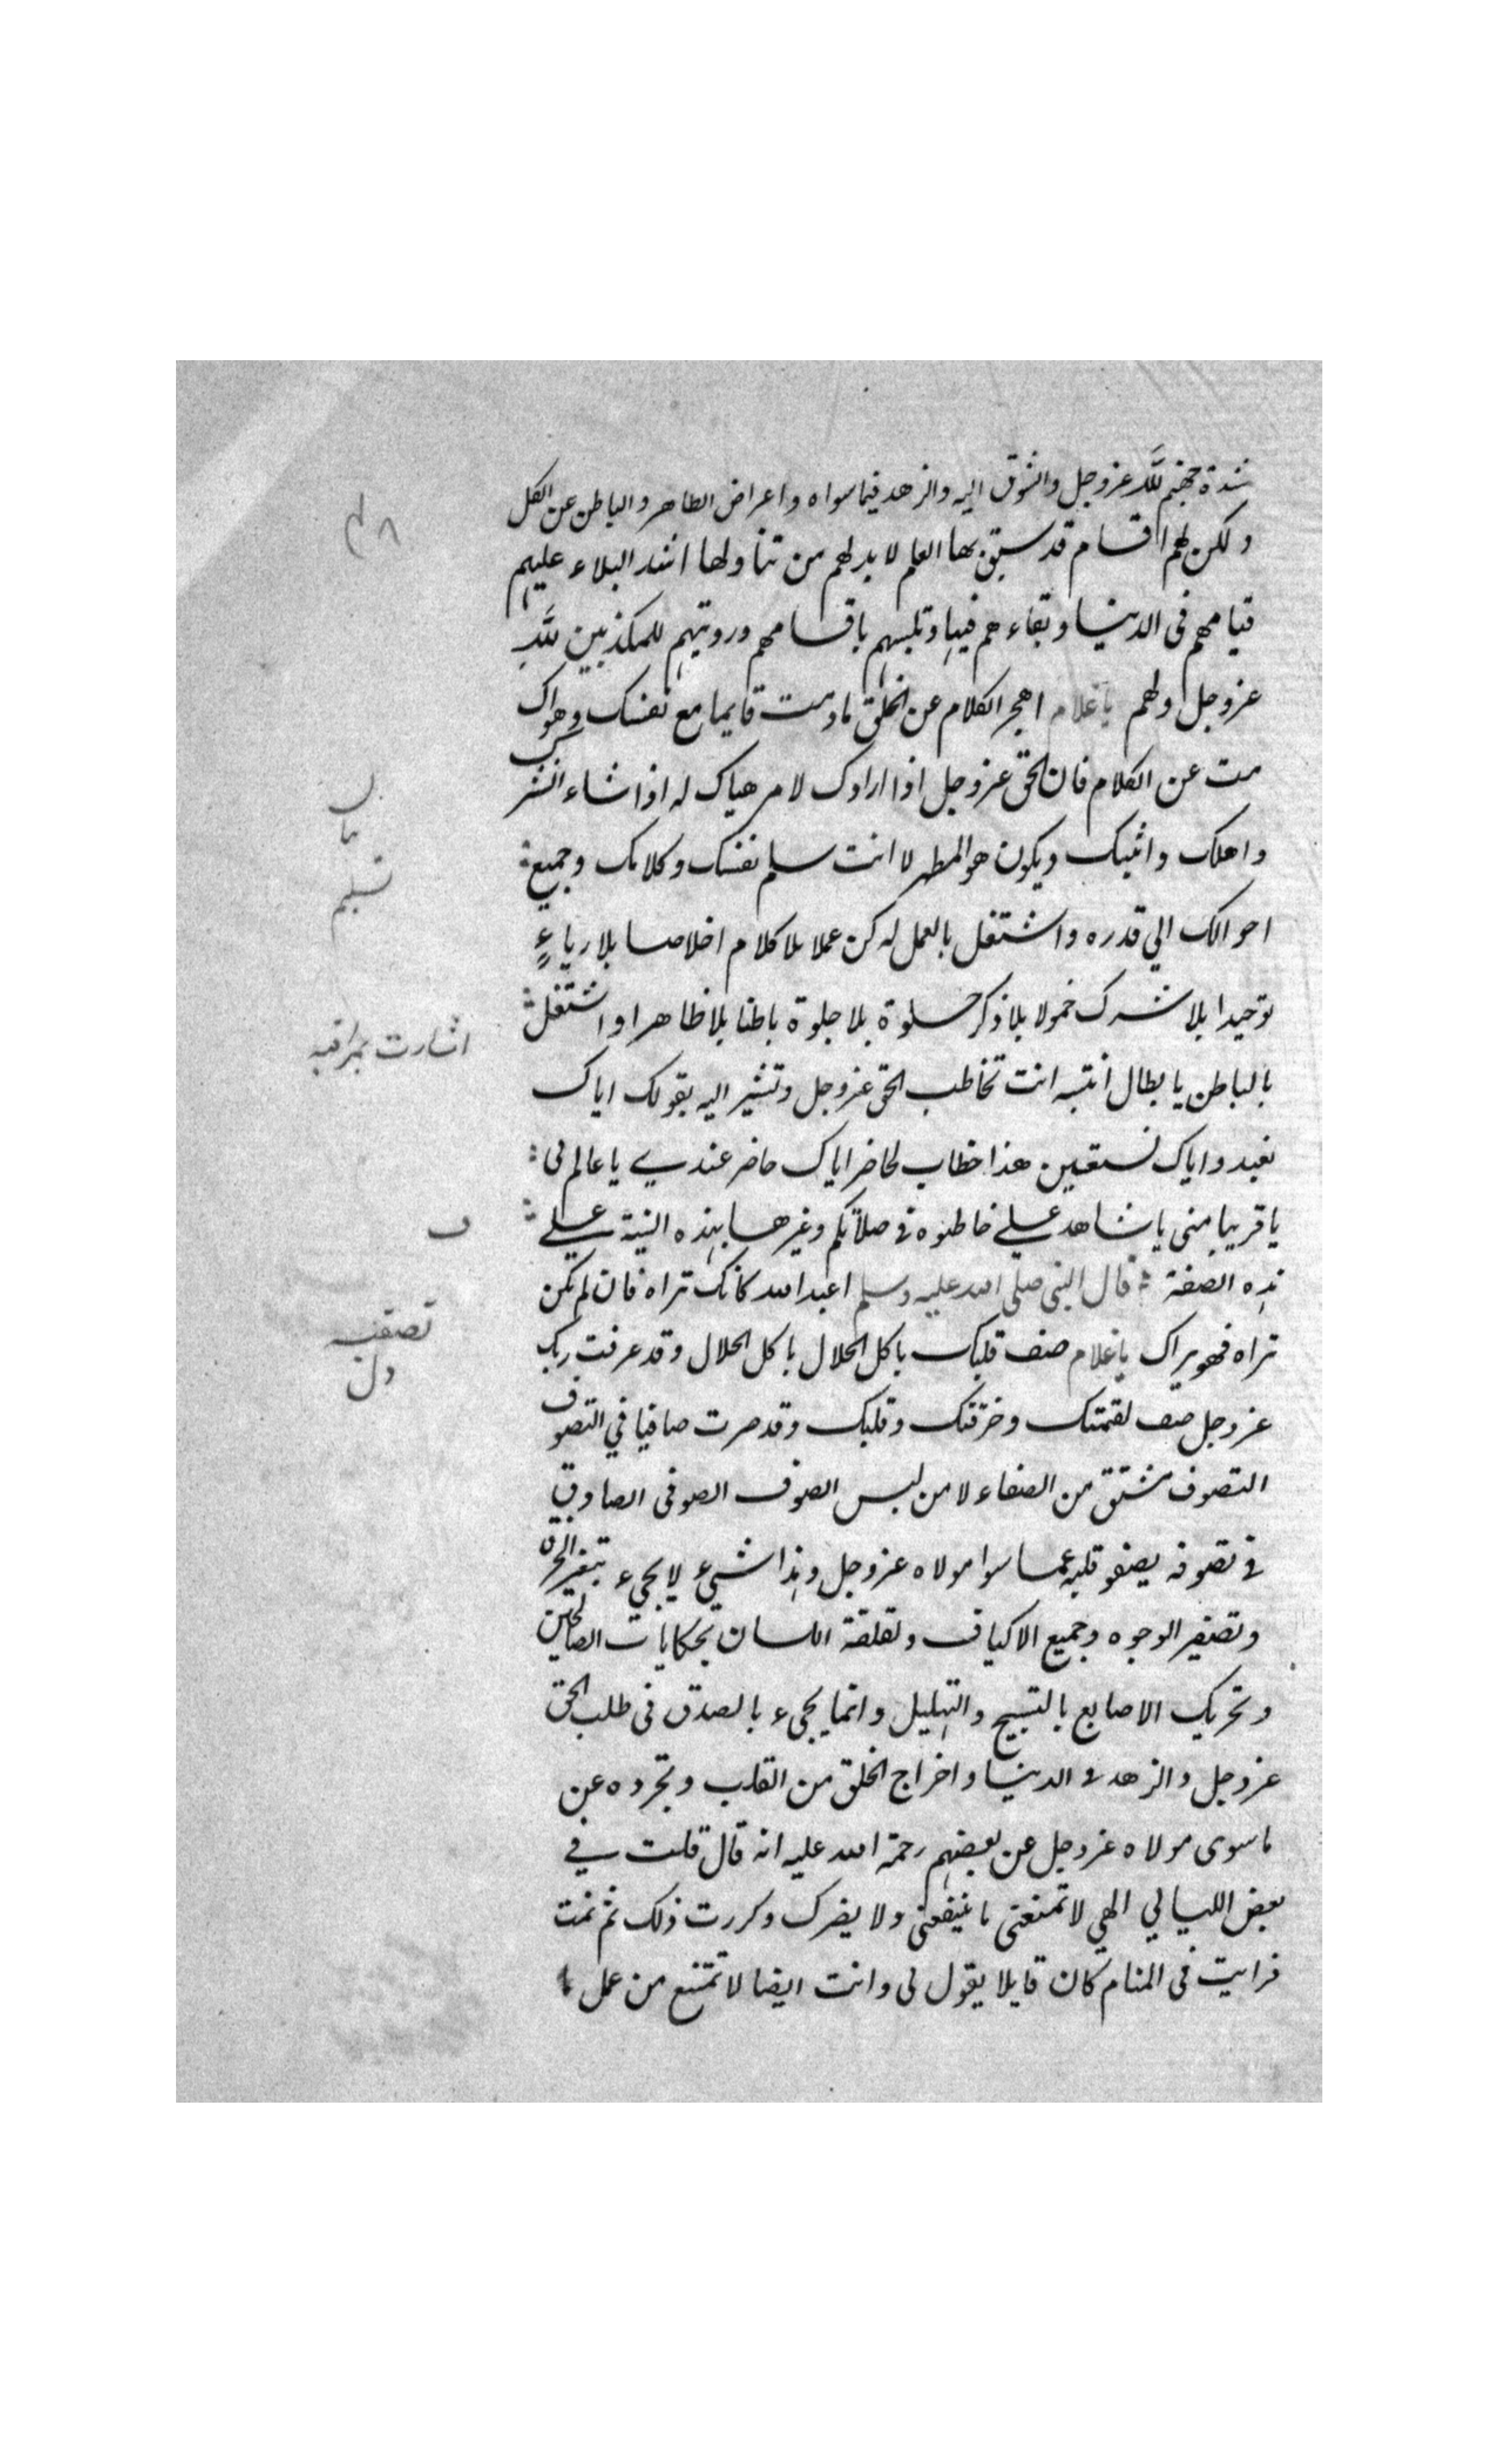 شدة حبهم لله عز وجل والشوق اليه والزهد فيما سواه واعراض الظاهر والباطن عن الكل
ولكن لهم اقسام قد سبق بها العلم لا بد لهم من تناولها اشد البلاء عليهم
قيامهم فى الدنيا وبقاءهم فيها وتلبسهم باقسامهم ورويتهم للمكذبين لله
عز وجل ولهم ياغلام اهجر الكلام عن الخلق مادمت قايما مع نفسك وهواك
مت عن الكلام فان الحق عز وجل اذا ارادك لامر هياك له اذا شاء انشر
واهلك واثبتك ويكون هو المظهر لا انت سلم نفسك وكلامك وجميع
احوالك الي قدره واشتغل بالعمل له كن عملا بلا كلام اخلاصا بلا رياء
توحيدا بلا شرك خمولا بلا ذكر خلوة بلا جلوة باطنا بلا ظاهرا واشتغل
بالباطن يا بطال انتبه انت تخاطب الحق عز وجل وتشير اليه بقولك اياك
نعبد واياك نستعين هذا خطاب لحاضر اياك حاضر عندي يا عالم بى
يا قريبا منى يا شاهد على خاطبوه فى صلاتكم وغيرها بهذه النية على
هذه الصفة قال النبى صلى الله عليه وسلم اعبد الله كانك تراه فان لم تكن
تراه فهو يراك ياغلام صف قلبك باكل الحلال باكل الحلال وقد عرفت ربك
عز وجل صف لقمتك وخرقتك وقلبك وقد صرت صافيا في التصوف
التصوف مشتق من الصفاء لا من لبس الصوف الصوفى الصادق
فى تصوفه يصفو قلبه عما سوا مولاه عز وجل وهذا شيء لا يجىء بتغير الخرق
وتصفير الوجوه وجميع الاكياف ولقلقة اللسان بحكايات الصالحين
وتحريك الاصابع بالتسبيح والتهليل وانما يجىء بالصدق فى طلب الحق
عز وجل والزهد فى الدنيا واخراج الخلق من القلب وتجرده عن
ما سوى مولاه عز وجل عن بعضهم رحمة الله عليه انه قال قلت في
بعض الليالي الهي لا تمنعنى ما ينفعنى ولا يضرك وكررت ذلك ثم نمت
فرايت فى المنام كان قايلا يقول لى وانت ايضا لا تمتنع من عمل ما
تسليم
اشارت بمراقبه
ف
تصفيه
دل